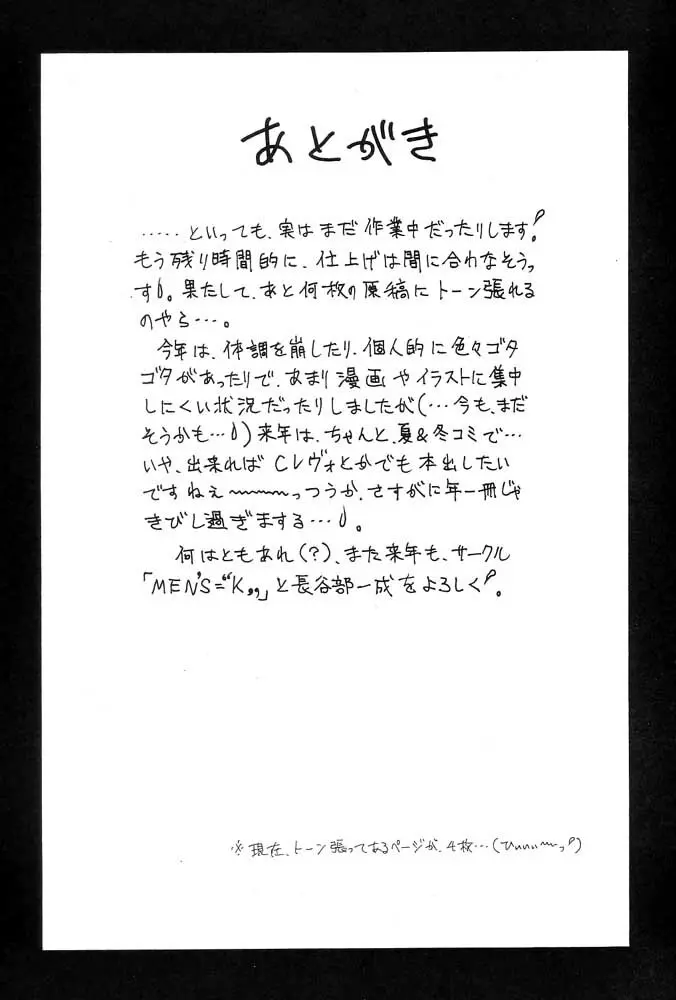 あとがき
‥‥‥といっても、実はまだ作業中だったりします!
もう残り時間的に、仕上げは間に合わなそうっ
す。果たして、あと何枚の原稿にトーン張れる
のやら‥‥。
今年は、体調を崩したり、個人的に色々ゴタ
ゴタがあったりで、あまり漫画やイラストに集中
しにくい状況だったりしましたが(‥‥今も、まだ
そうかも‥‥)来年は、ちゃんと、夏&冬コミで‥‥
いや、出来ればCレヴォとかでも本出したい
ですねぇ〜〜〜っつうか、さすがに年一冊じゃ
きびし過ぎまする‥‥。
何はともあれ(?)、また来年も、サークル
「MEN'S="K„」と長谷部一成をよろしく!。
※現在、トーン張ってあるページが、4枚‥‥(ひぃぃぃ〜っ!)